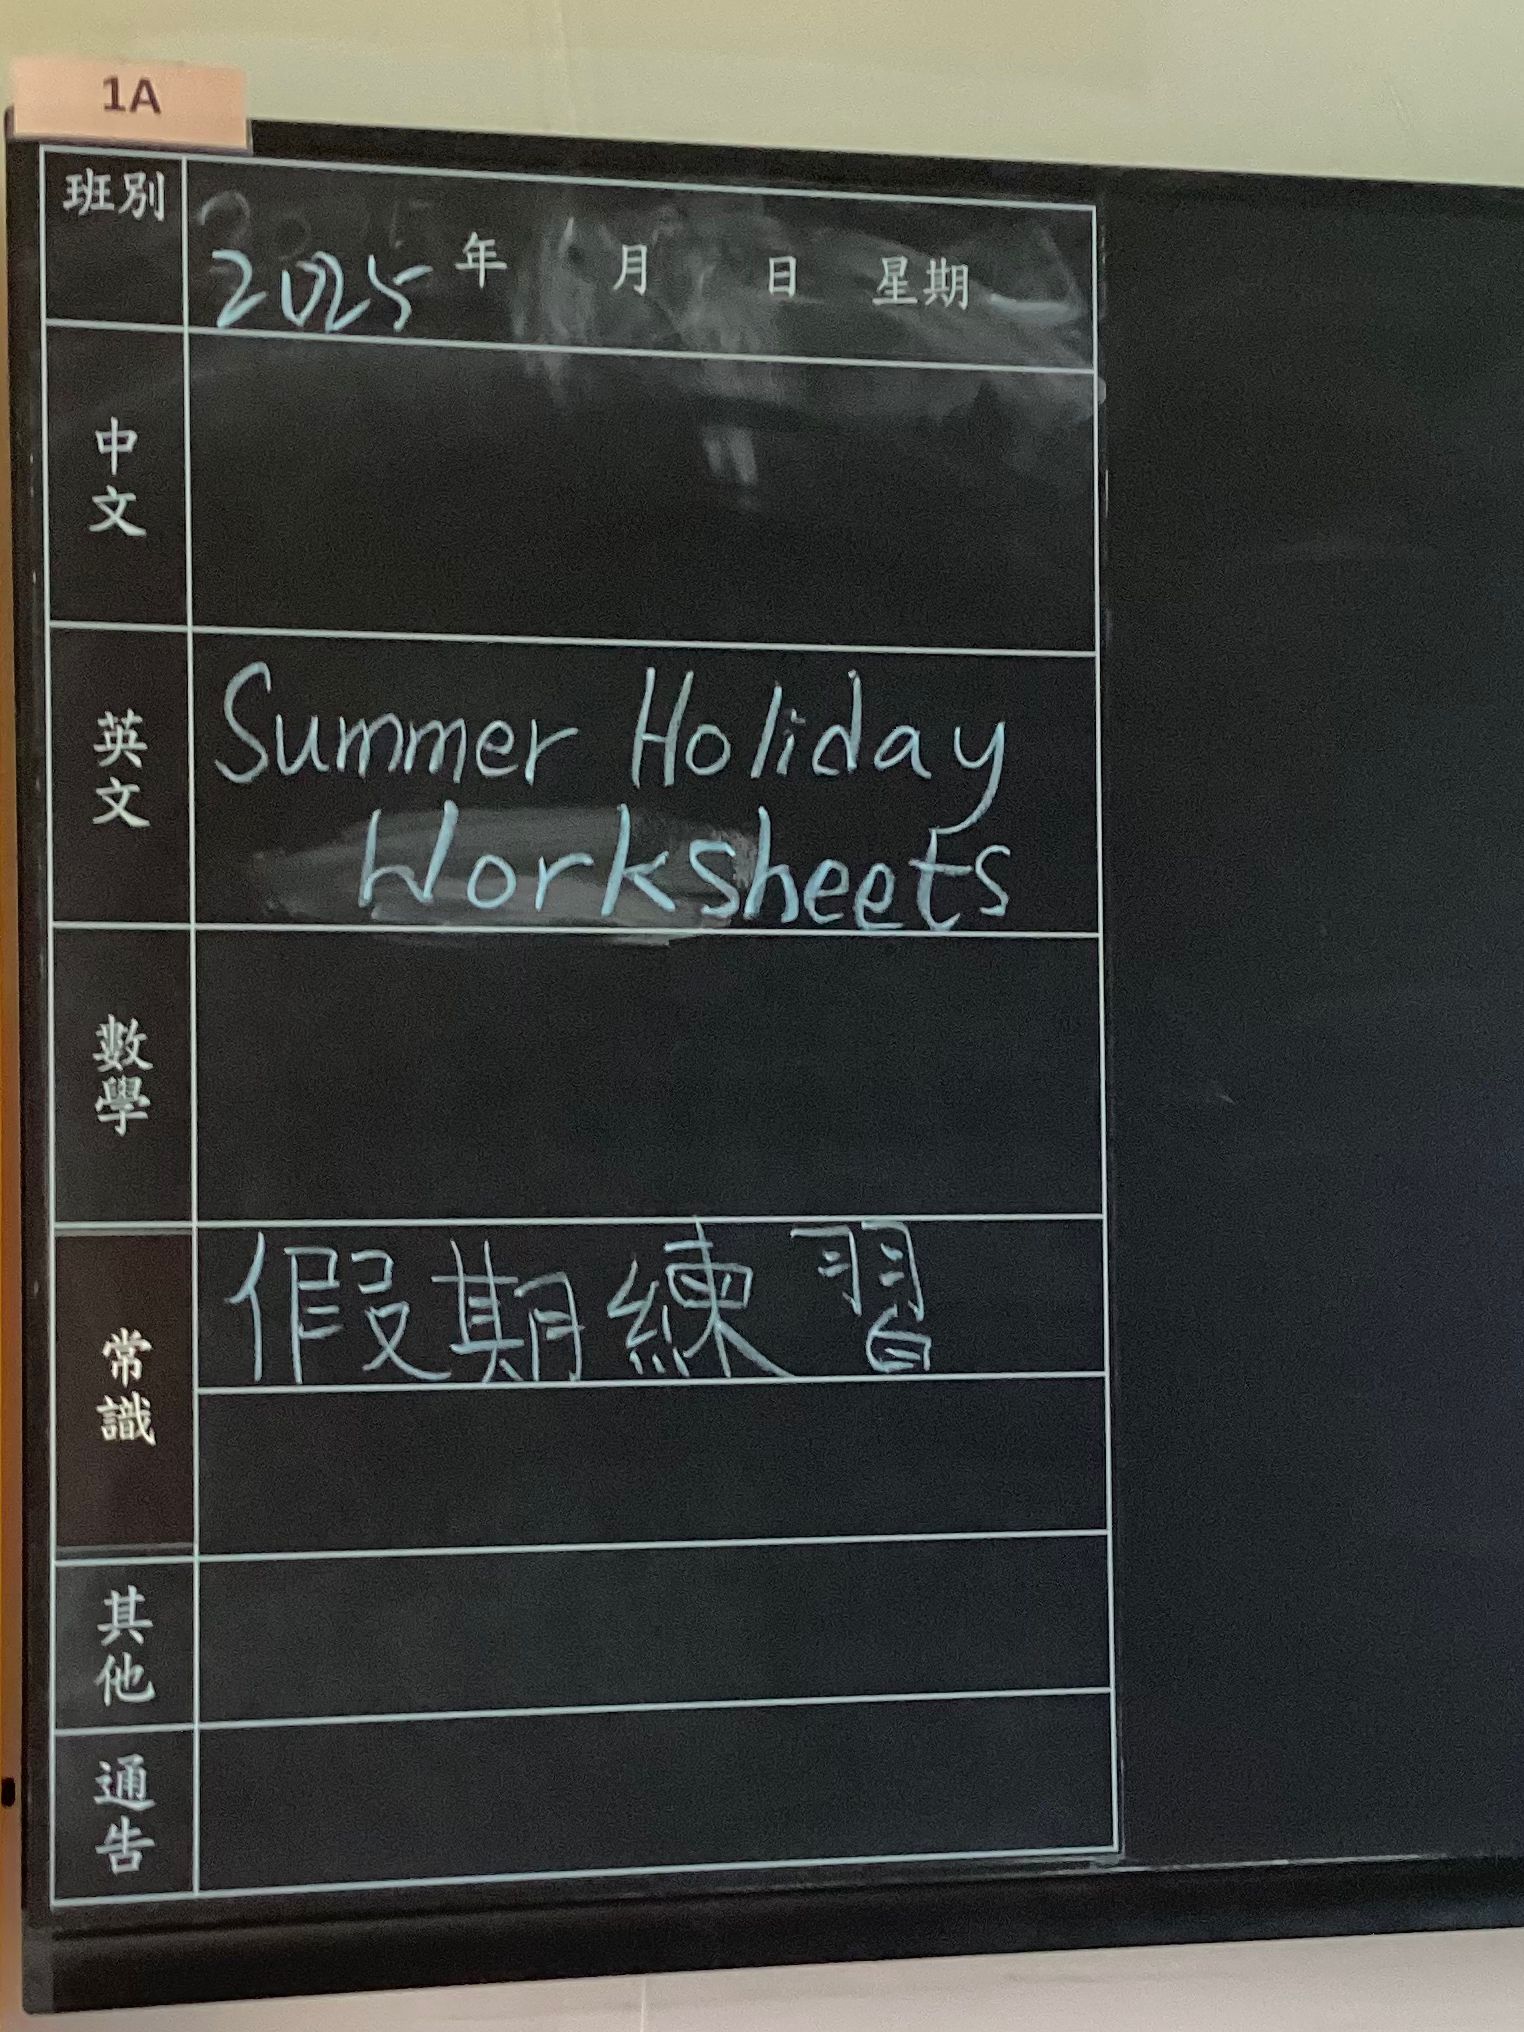 1A
班別
2025 年 月 日 星期 一
中文
英文
Summer Holiday
Worksheets
數學
常識
假期練習
其他
通告